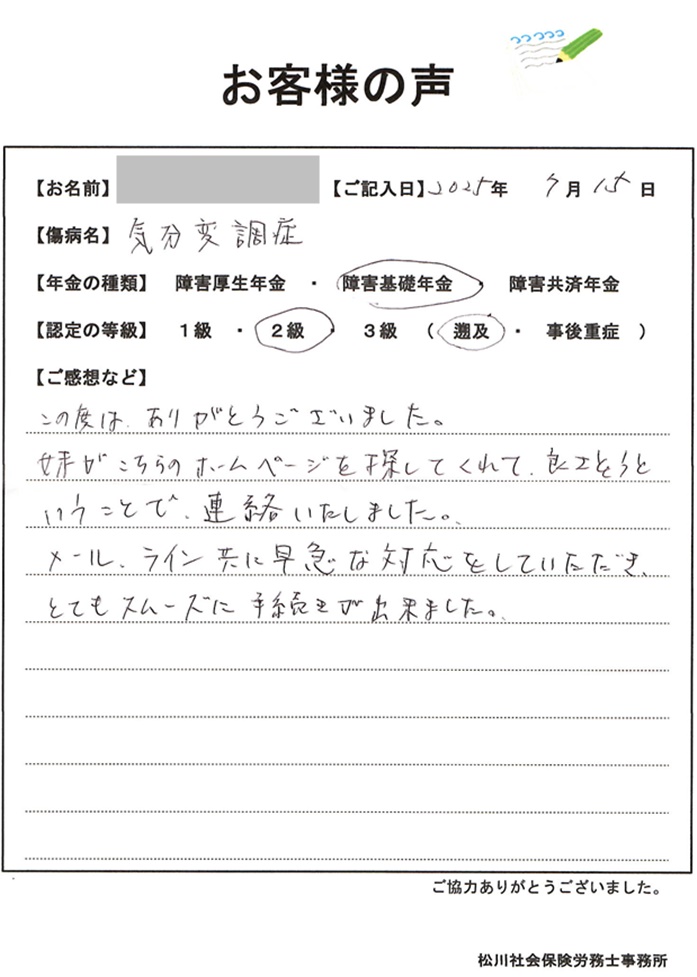 お客様の声
【お名前】 【ご記入日】2025年 7月15日
【傷病名】 気分変調症
【年金の種類】 障害厚生年金 ・ 障害基礎年金 ・ 障害共済年金
【認定の等級】 1級 ・ 2級 ・ 3級 ( 遡及 ・ 事後重症 )
【ご感想など】
この度は、ありがとうございました。
妹がこちらのホームページを探してくれて、良さそうと
いうことで、連絡いたしました。
メール、ライン共に早急な対応をしていただき、
とてもスムーズに手続きが出来ました。
ご協力ありがとうございました。
松川社会保険労務士事務所